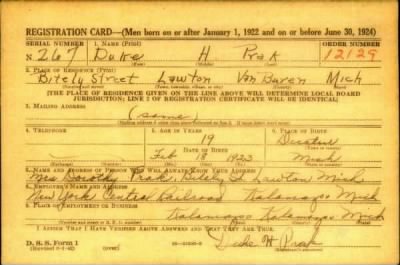 REGISTRATION CARD—(Men born on or after January 1, 1922 and on or before June 30, 1924)
SERIAL NUMBER 1. NAME (Print) ORDER NUMBER
N 267 Duke H Prak 12129
(First) (Middle) (Last)
2. PLACE OF RESIDENCE (Print)
Bitely Street Lawton Van Buren Mich
(Number and street) (Town, township, village, or city) (County) (State)
[THE PLACE OF RESIDENCE GIVEN ON THE LINE ABOVE WILL DETERMINE LOCAL BOARD
JURISDICTION; LINE 2 OF REGISTRATION CERTIFICATE WILL BE IDENTICAL]
3. MAILING ADDRESS
(same)
4. TELEPHONE 5. AGE IN YEARS 6. PLACE OF BIRTH
19 Decatur
DATE OF BIRTH
Feb 18 1923 Mich
(Exchange) (Number) (Mo.) (Day) (Yr.) (State or country)
7. NAME AND ADDRESS OF PERSON WHO WILL ALWAYS KNOW YOUR ADDRESS
Mrs Dorothy Prak, Bitely St Lawton Mich
8. EMPLOYER'S NAME AND ADDRESS
New York Central Railroad Kalamazoo Mich
9. PLACE OF EMPLOYMENT OR BUSINESS
Kalamazoo Kalamazoo Mich
(Number and street or R. F. D. number) (Town) (County) (State)
I AFFIRM THAT I HAVE VERIFIED ABOVE ANSWERS AND THAT THEY ARE TRUE.
D. S. S. Form 1
Duke H Prak